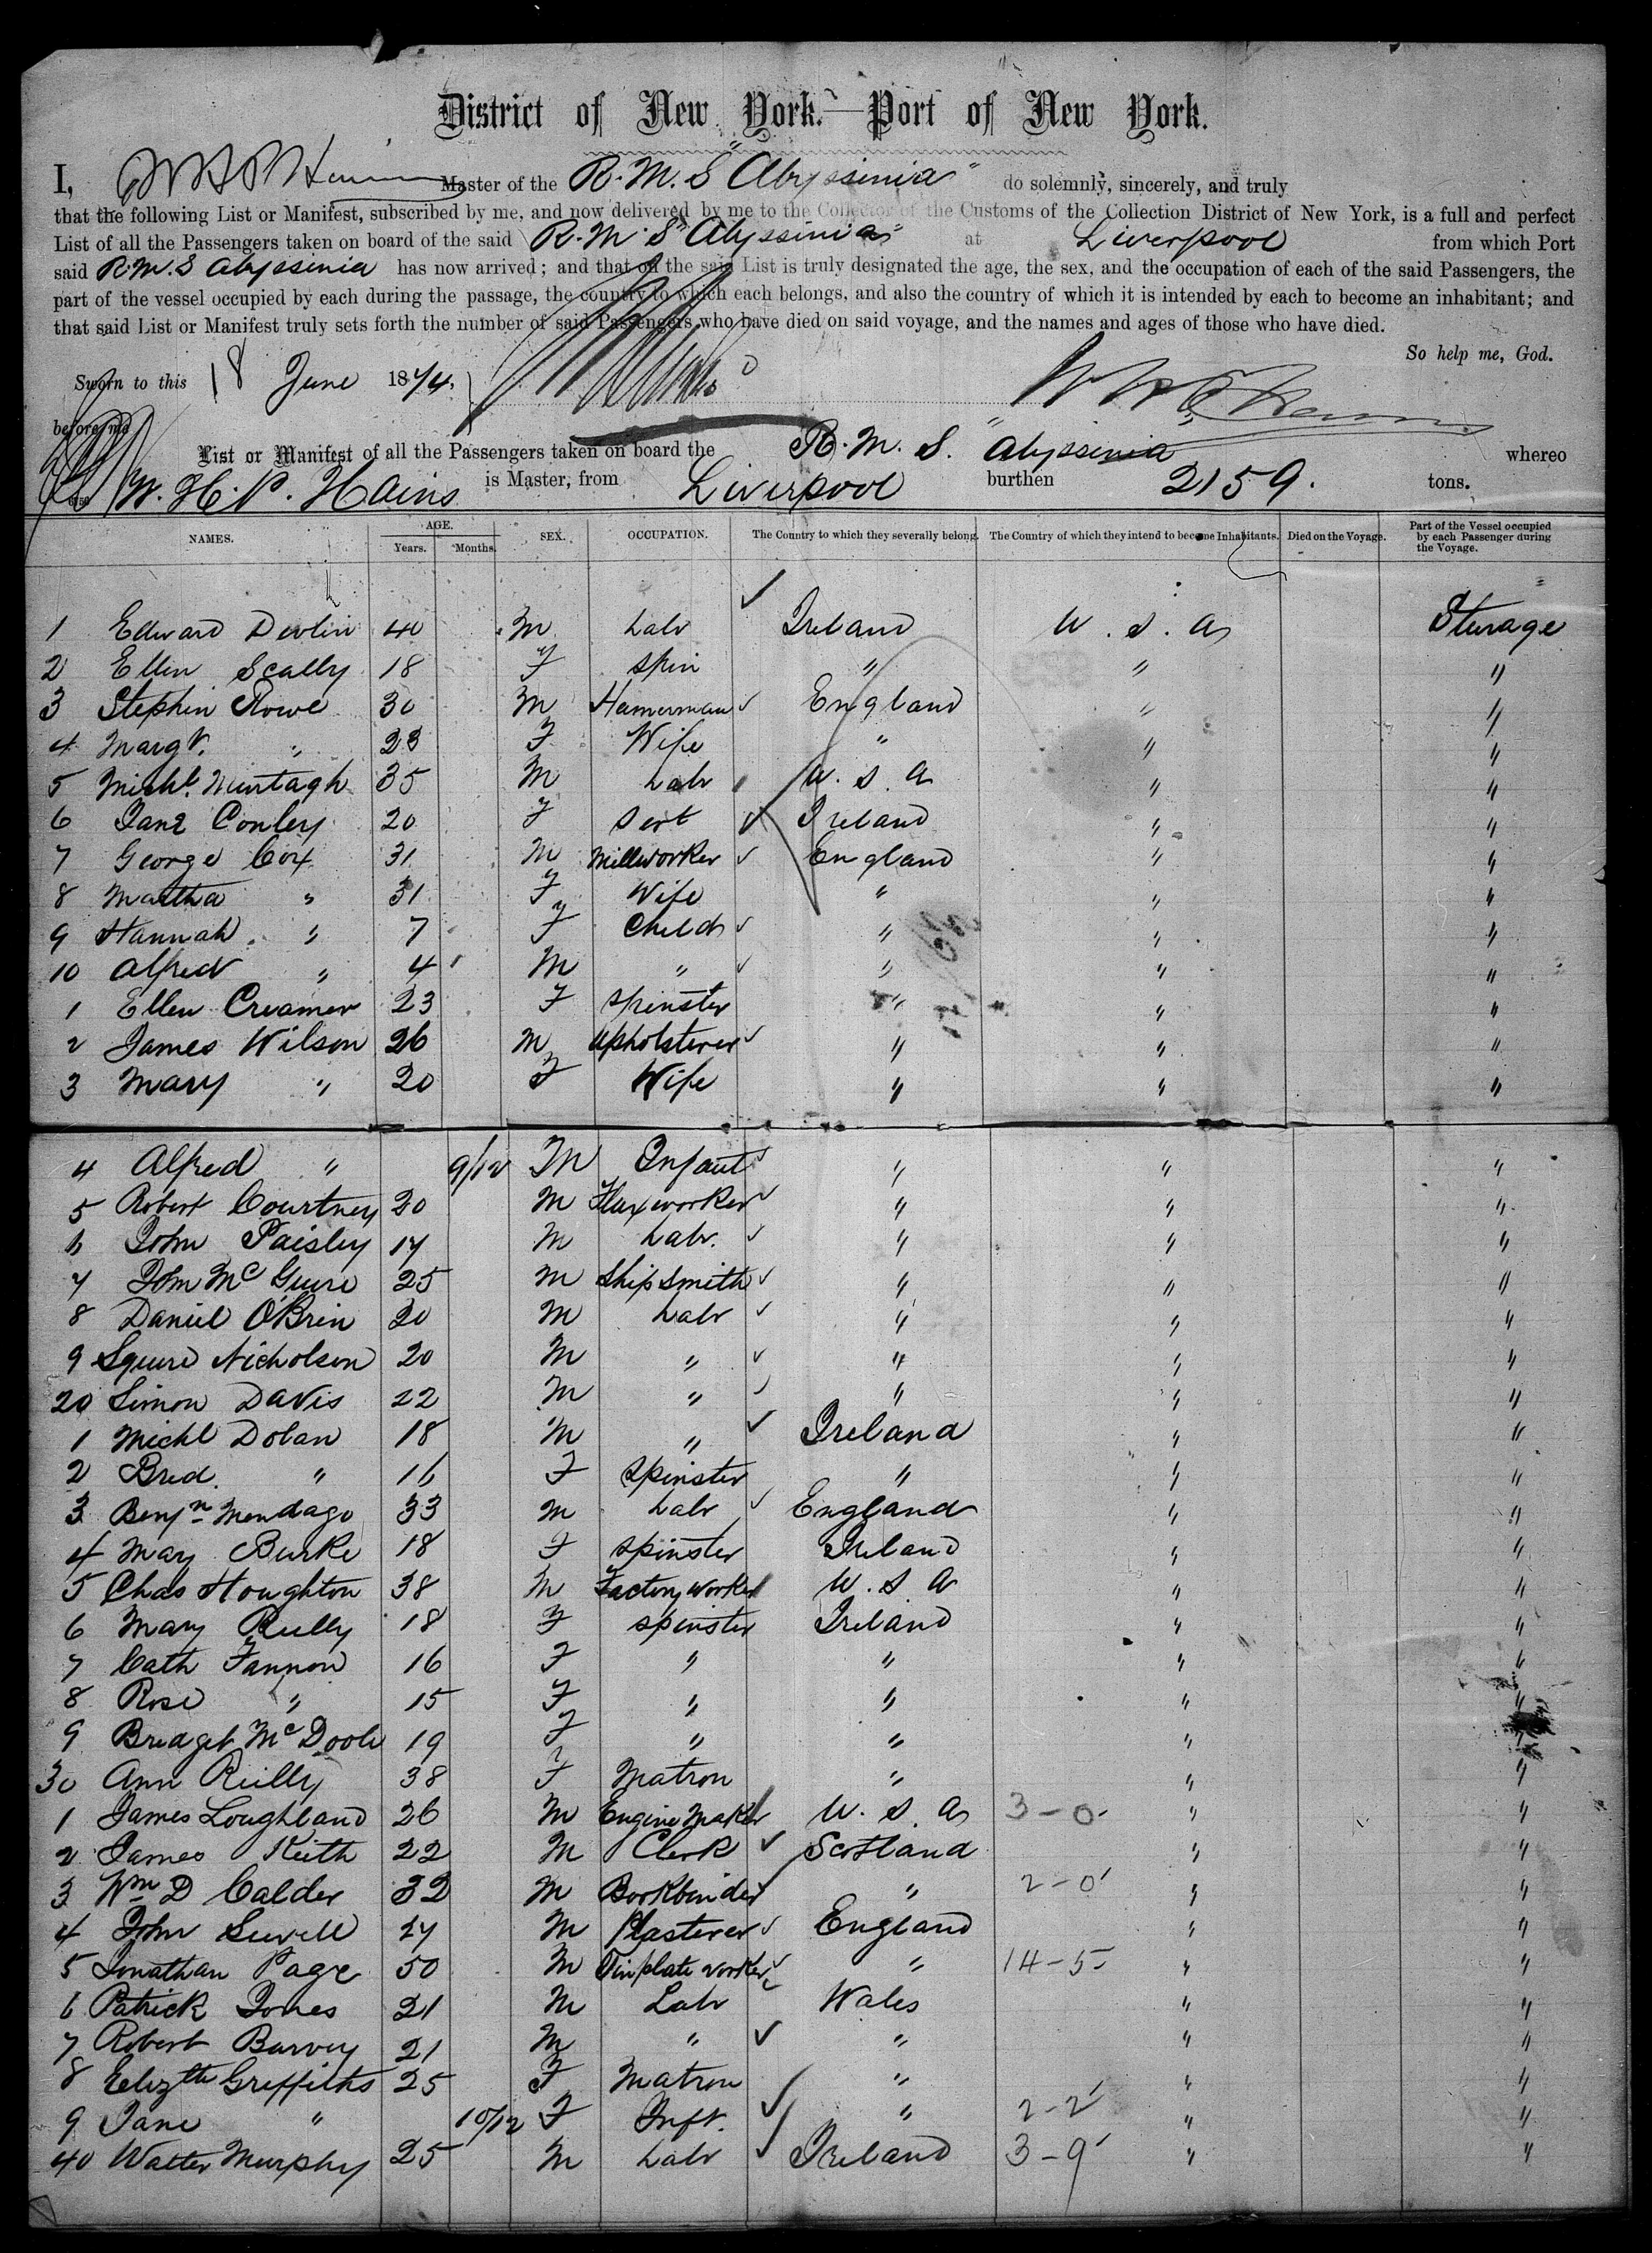 District of New York.—Port of New York.
I, Master of the R.M.S "Abyssinia" do solemnly, sincerely, and truly
that the following List or Manifest, subscribed by me, and now delivered by me to the Collector of the Customs of the Collection District of New York, is a full and perfect
List of all the Passengers taken on board of the said R.M.S "Abyssinia" at Liverpool from which Port
said R.M.S Abyssinia has now arrived; and that on the said List is truly designated the age, the sex, and the occupation of each of the said Passengers, the
part of the vessel occupied by each during the passage, the country to which each belongs, and also the country of which it is intended by each to become an inhabitant; and
that said List or Manifest truly sets forth the number of said Passengers who have died on said voyage, and the names and ages of those who have died.
So help me, God.
Sworn to this 18 June 1874.
before me
List or Manifest of all the Passengers taken on board the R.M.S. "Abyssinia" whereo
W. H. P. Hains is Master, from Liverpool burthen 2159. tons.
NAMES. AGE. Years. Months. SEX. OCCUPATION. The Country to which they severally belong. The Country of which they intend to become Inhabitants. Died on the Voyage. Part of the Vessel occupied by each Passenger during the Voyage.
1 Edward Devlin 40 M Labr Ireland U.S.A Sterage
2 Ellen Scally 18 F Spin " " "
3 Stephen Rowe 30 M Hamerman England " "
4 Margt. " 23 F Wife " " "
5 Michl. Murtagh 35 M Labr U.S.A " "
6 Jane Conley 20 F Servt Ireland " "
7 George Cox 31 M Millworker England " "
8 Martha " 31 F Wife " " "
9 Hannah " 7 F Child " " "
10 Alfred " 4 M " " " "
1 Ellen Creamer 23 F Spinster " " "
2 James Wilson 26 M Upholsterer " " "
3 Mary " 20 F Wife " " "
4 Alfred " 9/12 M Infant " " "
5 Robert Courtney 20 M Flaxworker " " "
6 John Paisley 17 M Labr. " " "
7 John McGuire 25 M Ship Smith " " "
8 Daniel O'Brin 20 M Labr " " "
9 Squire Nicholson 20 M " " " "
20 Simon Davis 22 M " " " "
1 Michl Dolan 18 M " Ireland " "
2 Brid. " 16 F Spinster " " "
3 Benjn Mendago 33 M Labr England " "
4 Mary Burke 18 F Spinster Ireland " "
5 Chas Houghton 38 M Factory worker U.S A " "
6 Mary Reilly 18 F Spinster Ireland " "
7 Cath Fannon 16 F " " " "
8 Rose " 15 F " " " "
9 Bridget McDoole 19 F " " " "
30 Ann Reilly 38 F Matron " " "
1 James Loughland 26 M Engine Maker U.S.A 3-0- " "
2 James Keith 22 M Clerk Scotland " "
3 Wm D Calder 32 M Bookbinder " 2-0' " "
4 John Sewell 27 M Plasterer England " "
5 Jonathan Page 50 M Tinplate worker " 14-5- " "
6 Patrick Jones 21 M Labr Wales " "
7 Robert Barvey 21 M " " " "
8 Elizth Griffiths 25 F Matron " " "
9 Jane " 10/12 F Inft. " 2-2' " "
40 Walter Murphy 25 M Labr Ireland 3-9' " "